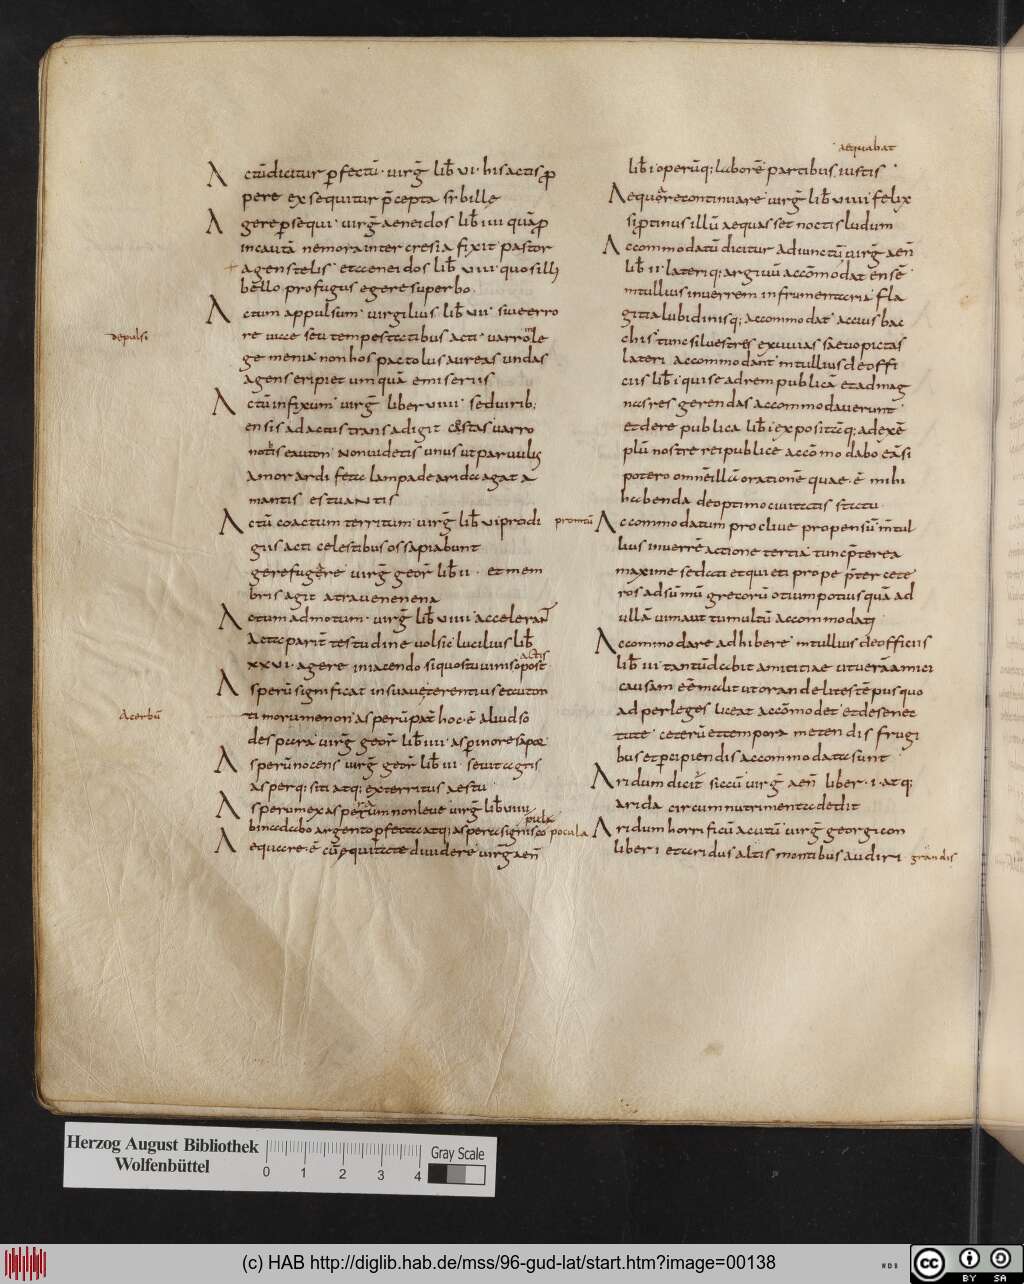 Actū dicitur pfectū· uirḡ lib̄ ui· his actis p
pere exsequitur p̄cepta sibillę
Agere psequi· uirḡ aeneidos lib̄ iiii quā p
incautā nemora inter cresia fixit pastor
agens telis· et aeneidos lib̄ uiii· quos illi
bello profugus egere superbo
Actum appulsum· uirgilius lib̄ uii· siue erro
depulsi
re uiae seu tempestatibus acti· uarro
ge menia· non hos pactolus aureas undas
agens eripiet umquā e miseriis
Actū infixum· uirḡ liber uiiii· seduirib;
ensis adactus transadigit costas uarro
Non uidetis unus ut paruulus
Amor ardifeta lampade arida agat a
mantis estuantis
Actū coactum territum· uirḡ lib̄ ui prodi
giis acti celestibus ossa piabunt
gere fugere uirḡ geor̄ lib̄ ii· et mem
bris agit atra uenena
Actum admotum· uirḡ lib̄ uiiii accelerant
Acta parit̄ testudine uolsci lucilius lib̄
xxvi· agere
actis
Asperū significat insuaue terentius et
Acerbū
asperū pat̄ hoc·ē aliud so
des para uirḡ geor̄ lib̄ iiii· asp in ore sapor
Asperū nocens uirḡ geor̄ lib̄ iii· seuit agris
asperq; siti atq; exterritus aestu
Asperum ex asperatum non leue uirḡ lib̄ uiiii
pula
bina dabo argento pfecta atq; aspera signis pocula
Aequare·ē cū equitate diuidere uirḡ aen̄
aequabat
lib̄ i operūq; laborē partibus iustis
Aequare continuare uirḡ lib̄ uiiii felix
si ptinus illū aequasset nocti ludum
Accommodatū dicitur adiunctū uirḡ aen̄
lib̄ ii lateriq; argiuū accōmodat ensē
m tullius in uerrem in frumentaria fla
gitia lubidinisq; accommodat· accius bac
chis tunc siluestres exuuias saeuo pictas
lateri accommodant m tullius de offi
ciis lib̄ i· qui se ad rem publicā et ad mag
nas res gerendas accommodauerunt·
et de re publica lib̄ i ex posita q; ad exē
plū nostre rei publice accōmodabo eā si
potero omnē illā orationē quae·ē mihi
habenda de optimo ciuitatis statu
promtū
Accommodatum procliue propensū m̄ tul
lius in uerrē actione tertia tunc p̄terea
maxime sedati et quieti prope p̄ter cete
ros ad sūmū otium potius quā ad
ullā uim aut tumultū accommodati
Accommodare adhibere m tullius de officiis
lib̄ iii tantū dabit amicitiae ut uerā amici
causam eē malit ut orande litestē pus quo
ad per leges liceat accōmodet et de senec
tute· cetera tempora metendis frugi
bus et pcipiendis accommodata sunt
Aridum dicit̄ siccū uirḡ aen̄ liber·i·atq;
arida circum nutrimenta dedit
Aridum horrificū acutū uirḡ georgicon
liber i et aridus altis montibus audiri
grandis
Herzog August Bibliothek
Wolfenbüttel
0 1 2 3 4
Gray Scale
(c) HAB http://diglib.hab.de/mss/96-gud-lat/start.htm?image=00138
WDB
cc BY SA